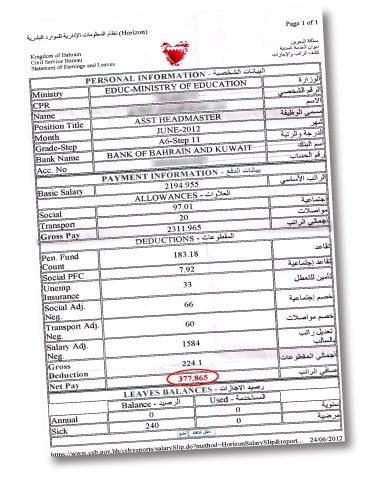 Page 1 of 1
(Horizon) نظام المعلومات الإدارية للموارد البشرية
Kingdom of Bahrain
Civil Service Bureau
Statement of Earnings and Leaves
مملكة البحرين
ديوان الخدمة المدنية
كشف الراتب والإجازات
PERSONAL INFORMATION - البيانات الشخصية
Ministry EDUC-MINISTRY OF EDUCATION الوزارة
CPR الرقم الشخصي
Name الاسم
Position Title ASST HEADMASTER مسمى الوظيفة
Month JUNE-2012 شهر
Grade-Step A6-Step 11 الدرجة والرتبة
Bank Name BANK OF BAHRAIN AND KUWAIT اسم البنك
Acc. No رقم الحساب
PAYMENT INFORMATION - بيانات الدفع
Basic Salary 2194.955 الراتب الأساسي
ALLOWANCES - العلاوات
Social 97.01 إجتماعية
Transport 20 مواصلات
Gross Pay 2311.965 إجمالي الراتب
DEDUCTIONS - المقطوعات
Pen. Fund Count 183.18 تقاعد
Social PFC 7.92 تقاعد إجتماعية
Unemp. Insurance 33 تأمين للتعطل
Social Adj. Neg. 66 خصم إجتماعية
Transport Adj. Neg. 60 خصم مواصلات
Salary Adj. Neg. 1584 تعديل راتب بالسالب
Gross Deduction 224.1 أجمالي المقطوعات
Net Pay 377.865 صافي الراتب
LEAVES BALANCES - رصيد الاجازات
Balance - الرصيد Used - المستخدمة
Annual 0 0 سنوية
Sick 240 0 مرضية
https://www.csb.gov.bh/csb/reports/salarySlip.do?method=HorizonSalarySlip&report...
24/06/2012